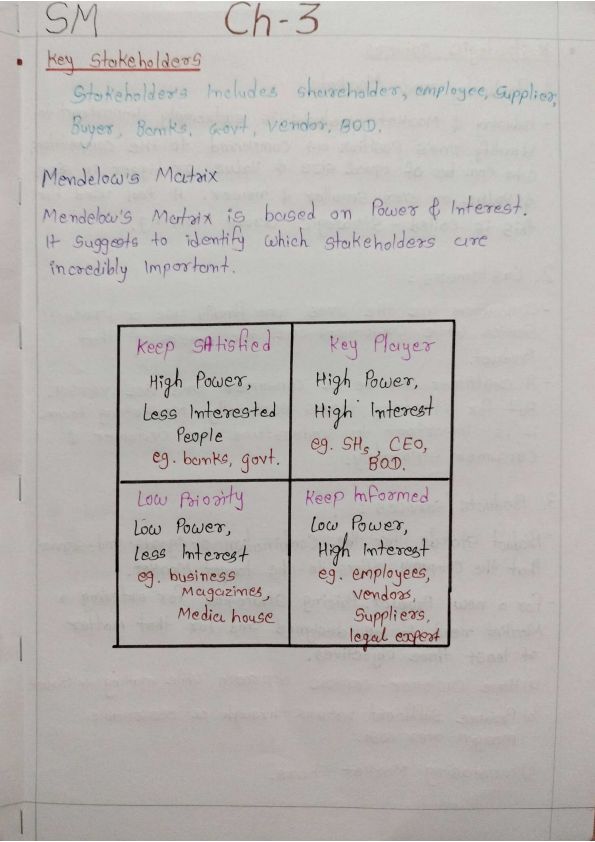 SM Ch-3
Key Stakeholders
Stakeholders Includes shareholder, employee, Supplier,
Buyer, Banks, Govt, Vendor, BOD.
Mendelow's Matrix
Mendelow's Matrix is based on Power & Interest.
It suggests to identify which stakeholders are
incredibly Important.
Keep Satisfied
High Power,
Less Interested
People
eg. banks, govt.
Key Player
High Power,
High Interest
eg. SHs, CEO,
BOD.
Low Priority
Low Power,
Less Interest
eg. business
Magazines,
Media house
Keep Informed.
Low Power,
High Interest
eg. employees,
vendors,
Suppliers,
legal expert